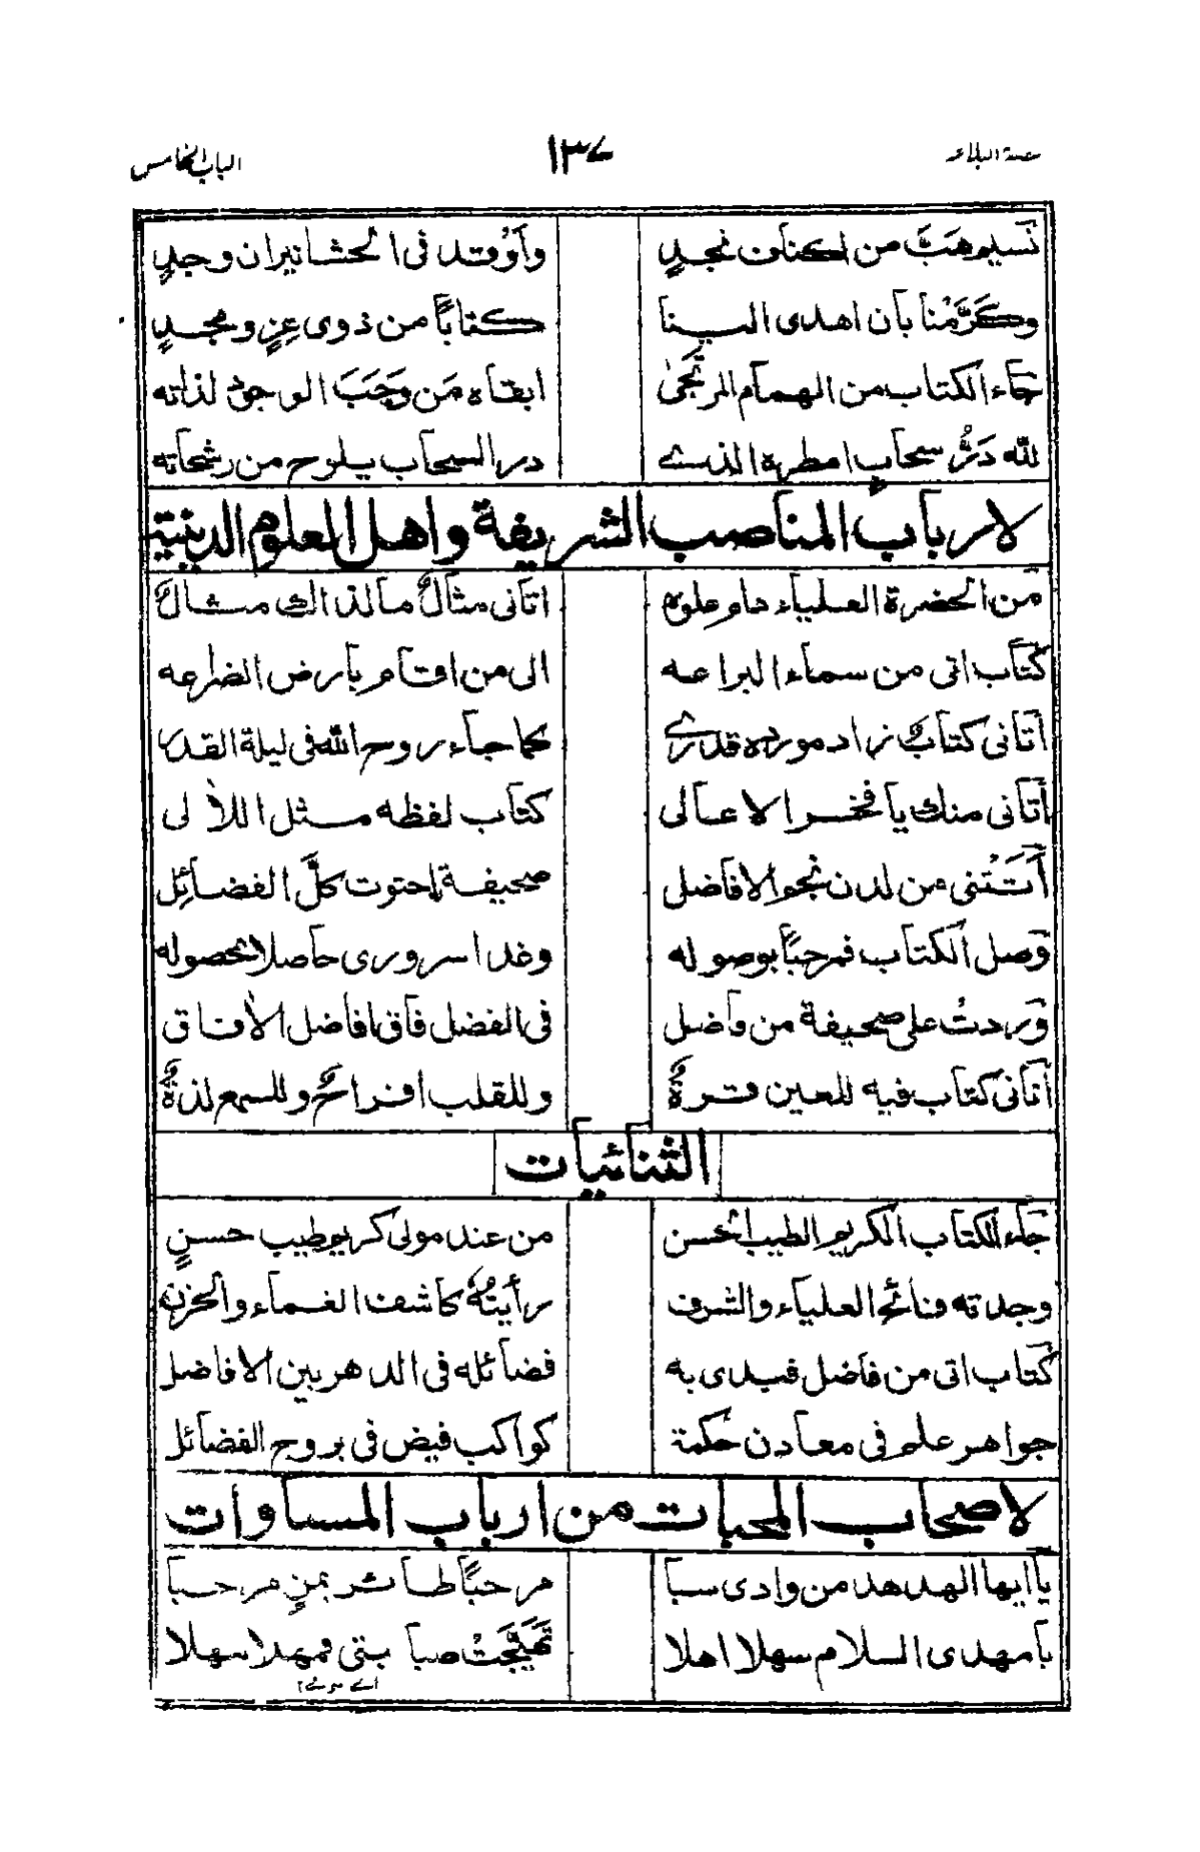 الباب الخامس ١٣٧
نسيم هَبَّ من اكناف نجدٍ وأوْقد فى الحشا نيران وجدٍ
وكَرَّمْنا بأن اهدى الينا كتاباً من ذوى عِزٍ ومجدٍ
جآء الكتاب من الهمام المرتجىٰ ابقاه مَن وَجَبَ الوجود لذاته
لله دَرُّ سحاب امطره الذى در السحاب يلوح من رشحاته
لارباب المناصب الشريفة واهل العلوم الدينية
من الحضرة العلياء دام علوه اتانى مثالٌ ما لذاك مثالٌ
كتاب اتى من سماء البراعه الى من اقام بأرض الضراعه
أتانى كتابٌ زاد مورده قدرى كما جاء روح الله فى ليلة القدر
أتانى منك يا فخر الاعالى كتاب لفظه مثل اللألى
أَتَتْنى من لدن نحو الافاضل صحيفة احتوت كلَّ الفضائِل
وصل الكتاب فمرحباً بوصوله وغدا سرورى حاصلا بحصوله
وردتْ على صحيفة من فاضل فى الفضل فاق افاضل الأفاق
أتانى كتاب فيه للعين قرةٌ وللقلب افراحٌ وللسمع لذةٌ
الثنائيات
جاء الكتاب الكريم الطيب الحسن من عند مولى كريم طيب حسنٍ
وجدته فائح العلياء والشرف رأيتهُ كاشف الغماء والحزن
كتاب اتى من فاضل فبدى به فضائله فى الدهر بين الافاضل
جواهر علم فى معادن حكمة كواكب فيض فى بروج الفضائل
لاصحاب المحبات من ارباب المساوات
يا ايها الهدهد من وادى سبا مرحباً طائر يمنٍ مرحبا
يا مهدى السلام سهلا اهلا تَهَيَّجَتْ صبابتى فمهلا سهلا